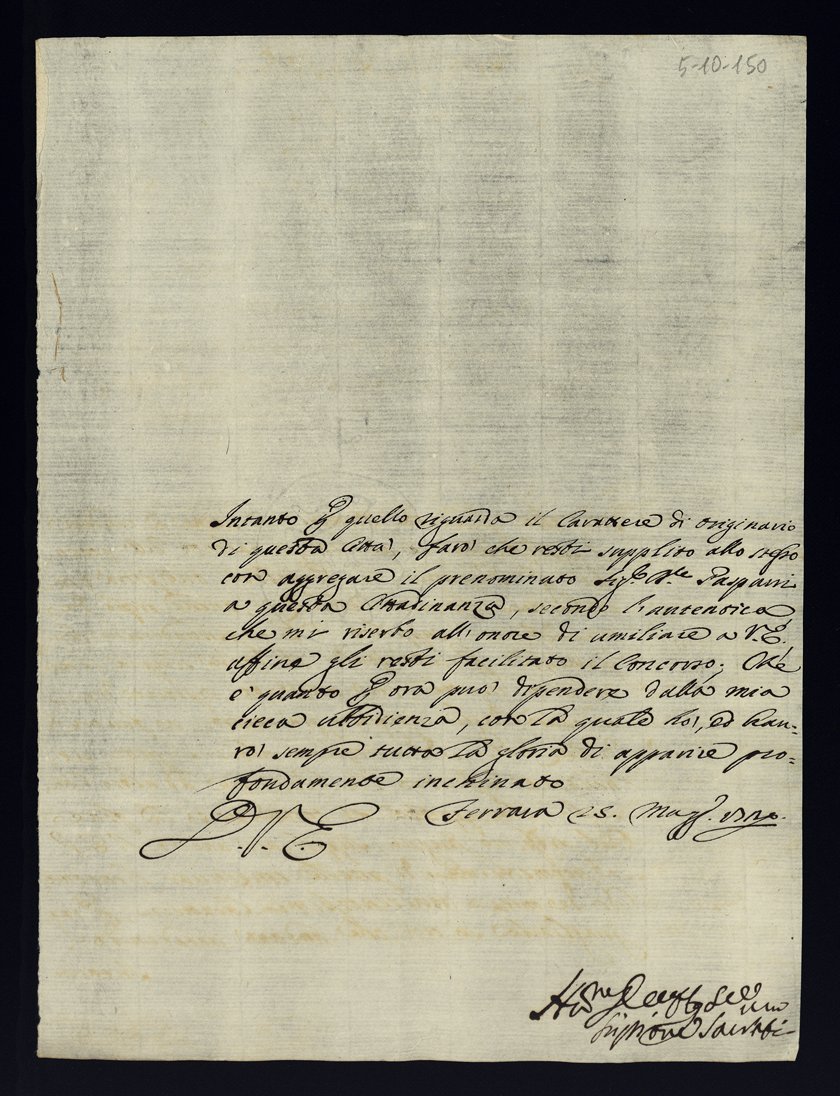 5-10-150
Intanto p quello riguarda il Carattere di originario
di questa Città, farò che resti supplito allo stesso
con aggregare il prenominato Sigr. Ab.te Gasparri
a questa Cittadinanza, secondo l'autentica
che mi riserbo all'onore di umiliare a V.E.
affine gli resti facilitato il Concorso; Che
è quanto p ora può dipendere dalla mia
cieca ubbidienza, con la quale hò, ed hau=
rò sempre tutta la gloria di apparire pro=
fondamente inchinato
D. V. E. Ferrara 25. Magg.